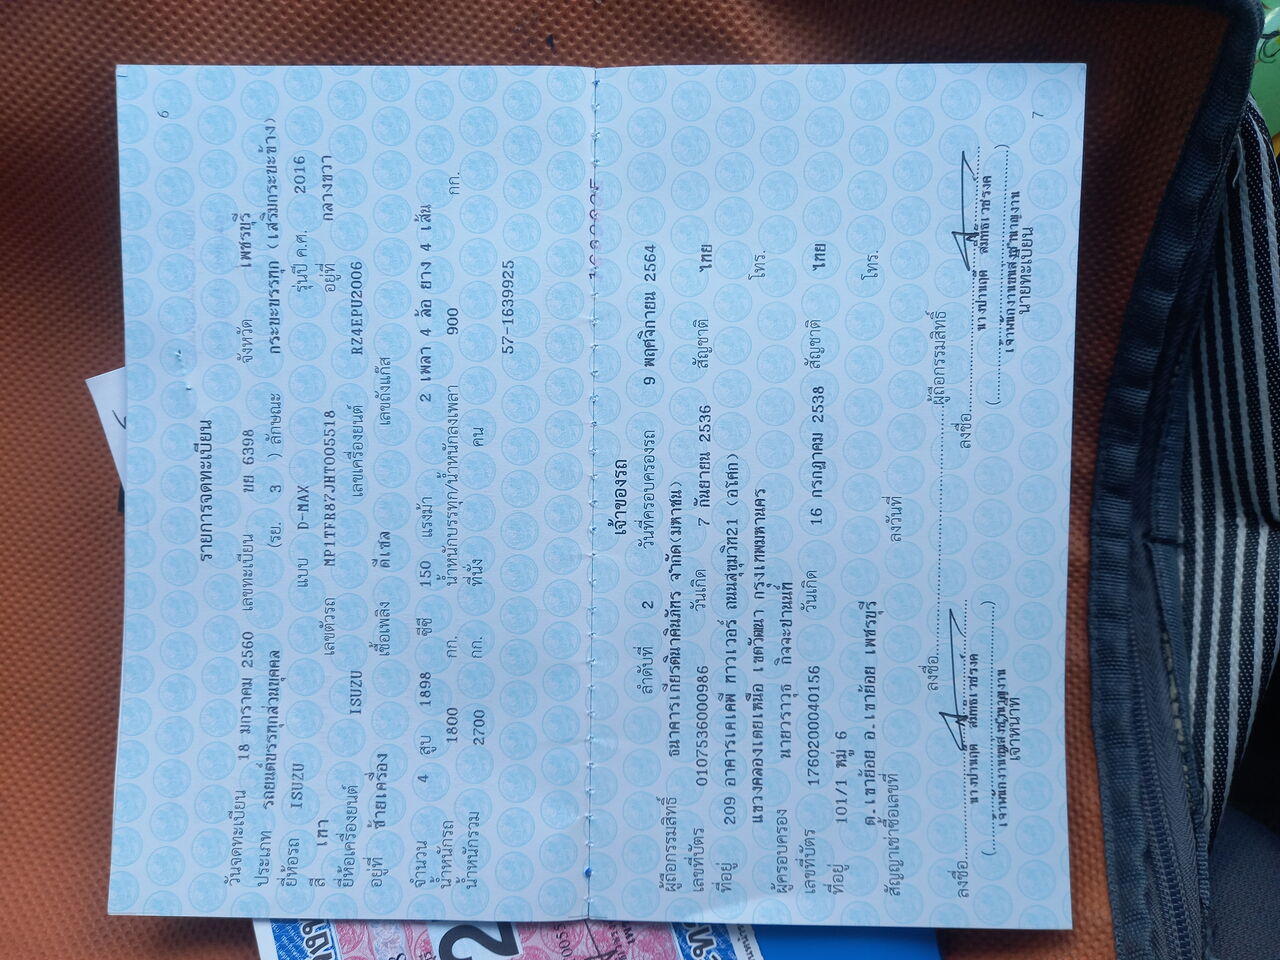 6
รายการจดทะเบียน
วันจดทะเบียน 18 มกราคม 2560 เลขทะเบียน ขย 6398 จังหวัด เพชรบุรี
ประเภท รถยนต์บรรทุกส่วนบุคคล (รย. 3 ) ลักษณะ กระบะบรรทุก (เสริมกระบะข้าง)
ยี่ห้อรถ ISUZU แบบ D-MAX รุ่นปี ค.ศ. 2016
สี เทา เลขตัวรถ MP1TFR87JHT005518 อยู่ที่ กลางขวา
ยี่ห้อเครื่องยนต์ ISUZU เลขเครื่องยนต์ RZ4EPU2006
อยู่ที่ ซ้ายเครื่อง เชื้อเพลิง ดีเซล เลขถังแก๊ส
จำนวน 4 สูบ 1898 ซีซี 150 แรงม้า 2 เพลา 4 ล้อ ยาง 4 เส้น
น้ำหนักรถ 1800 กก. น้ำหนักบรรทุก/น้ำหนักลงเพลา 900 กก.
น้ำหนักรวม 2700 กก. ที่นั่ง คน
57-1639925
เจ้าของรถ
ลำดับที่ 2 วันที่ครอบครองรถ 9 พฤศจิกายน 2564
ผู้ถือกรรมสิทธิ์ ธนาคารเกียรตินาคินภัทร จำกัด(มหาชน)
เลขที่บัตร 0107536000986 วันเกิด 7 กันยายน 2536 สัญชาติ ไทย
ที่อยู่ 209 อาคารเคเคพี ทาวเวอร์ ถนนสุขุมวิท21 (อโศก)
แขวงคลองเตยเหนือ เขตวัฒนา กรุงเทพมหานคร โทร.
ผู้ครอบครอง นายวราวุธ กิจจะปานนท์
เลขที่บัตร 1760200040156 วันเกิด 16 กรกฎาคม 2538 สัญชาติ ไทย
ที่อยู่ 101/1 หมู่ 6
ต.เขาย้อย อ.เขาย้อย เพชรบุรี โทร.
สัญญาเช่าซื้อเลขที่ ลงวันที่
ลงชื่อ ผู้ถือกรรมสิทธิ์
ลงชื่อ ลงชื่อ
เจ้าหน้าที่ นายทะเบียน
7